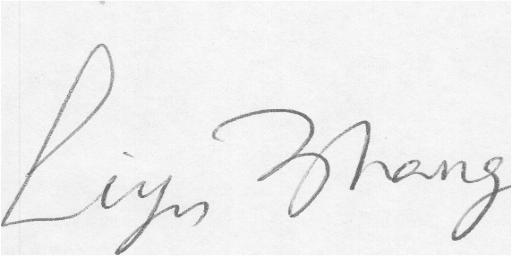 Liyi Zhang